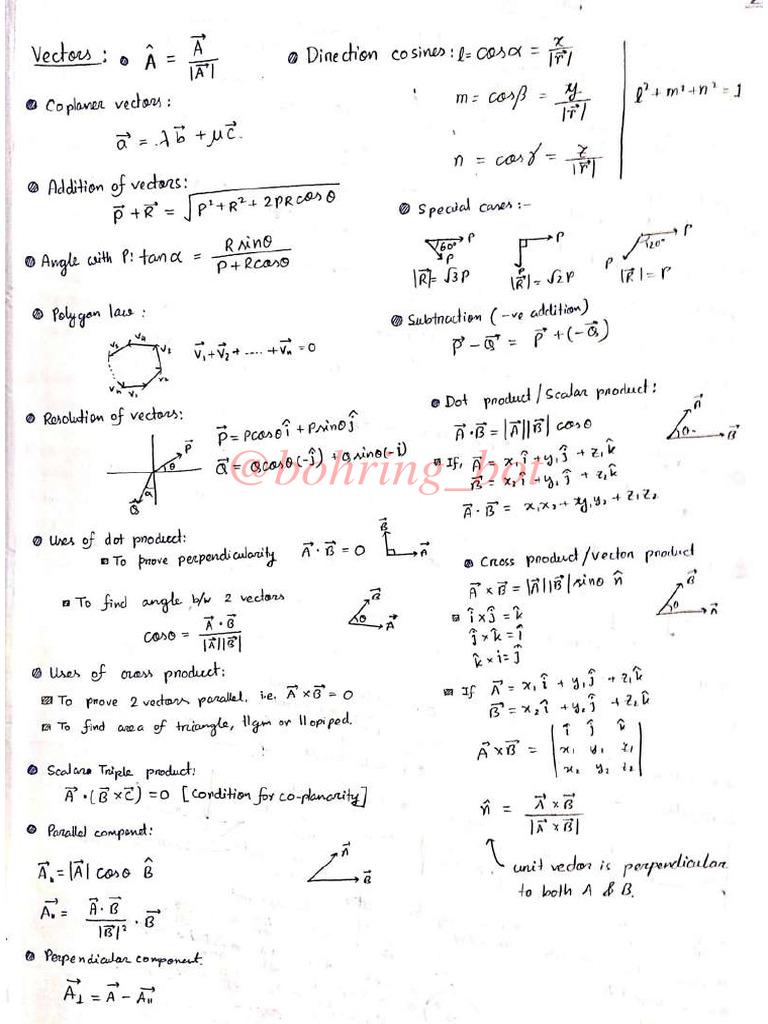 Vectors : Â = A⃗ / |A⃗|
Coplaner vectors :
a⃗ = λb⃗ + μc⃗.
Addition of vectors:
P⃗ + R⃗ = √(P² + R² + 2PR cosθ)
Angle with P: tanα = R sinθ / (P + R cosθ)
Polygon law :
V₁ V₂ V₃ V₄ V₅ Vₙ
V⃗₁ + V⃗₂ + .... + V⃗ₙ = 0
Resolution of vectors:
P⃗ θ α Q⃗
P⃗ = P cosθ î + P sinθ ĵ
Q⃗ = Q cosθ (-ĵ) + Q sinθ (-i)
Uses of dot product:
To prove perpendicularity A⃗ · B⃗ = 0
B⃗ A⃗
To find angle b/w 2 vectors
cosθ = A⃗ · B⃗ / |A⃗||B⃗|
B⃗ θ A⃗
Uses of cross product:
To prove 2 vectors parallel, i.e. A⃗ × B⃗ = 0
To find area of triangle, llgm or llopiped.
Scalar Triple product:
A⃗ · (B⃗ × C⃗) = 0 [condition for co-planarity]
Parallel compond:
A⃗ₗₗ = |A⃗| cosθ B̂
A⃗ₗₗ = A⃗ · B⃗ / |B⃗|² . B⃗
A⃗ B⃗
Perpendicular component.
A⃗⊥ = A⃗ - A⃗ₗₗ
Direction cosines : l = cosα = x / |r⃗|
m = cosβ = y / |r⃗|
n = cosγ = z / |r⃗|
l² + m² + n² = 1
Special cases :-
60° P P
P P
120° P P
|R⃗| = √3 P |R⃗| = √2 P |R⃗| = P
Subtraction (-ve addition)
P⃗ - Q⃗ = P⃗ + (-Q⃗)
Dot product / Scalar product :
A⃗ · B⃗ = |A⃗||B⃗| cosθ
A⃗ θ B⃗
If, A⃗ = x₁î + y₁ĵ + z₁k̂
B⃗ = x₂î + y₂ĵ + z₂k̂
A⃗ · B⃗ = x₁x₂ + y₁y₂ + z₁z₂
Cross product / vector product
A⃗ × B⃗ = |A⃗||B⃗| sinθ n̂
B⃗ θ A⃗
î × ĵ = k̂
ĵ × k̂ = î
k̂ × i = ĵ
If A⃗ = x₁î + y₁ĵ + z₁k̂
B⃗ = x₂î + y₂ĵ + z₂k̂
A⃗ × B⃗ = | î ĵ k̂ |
| x₁ y₁ z₁ |
| x₂ y₂ z₂ |
n̂ = A⃗ × B⃗ / |A⃗ × B⃗|
unit vector is perpendicular
to both A & B.
@bohring_bot